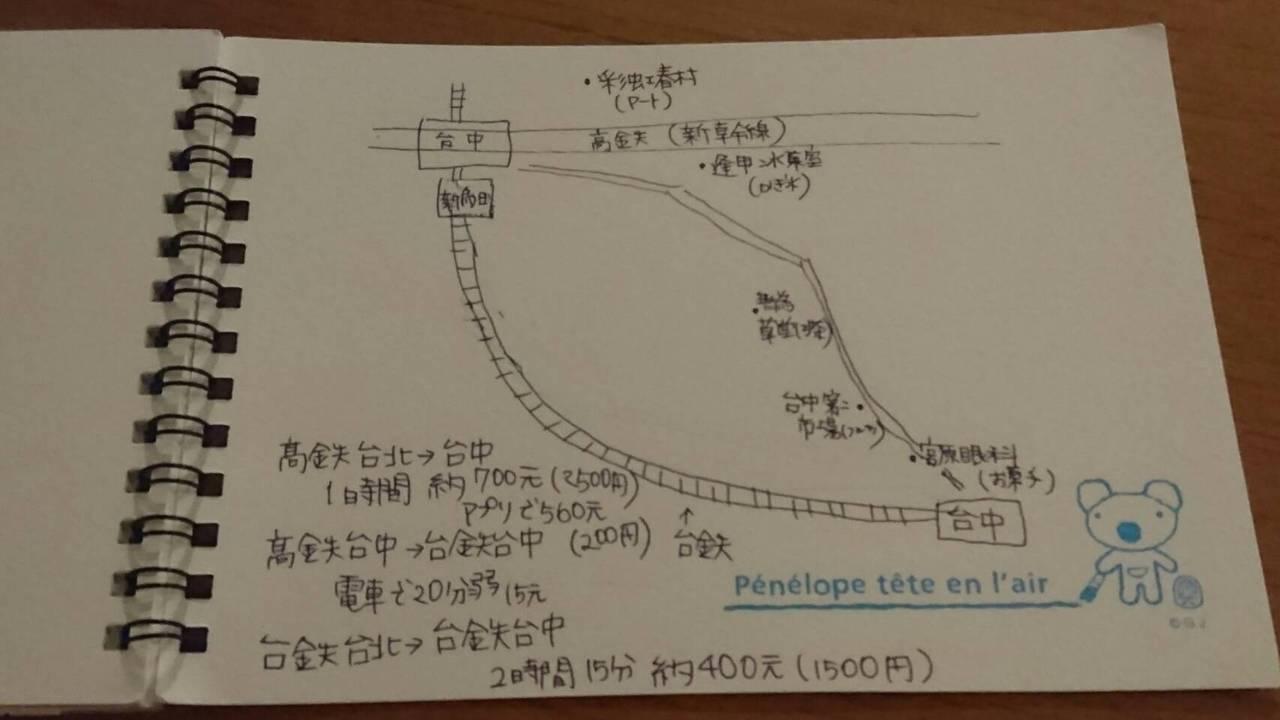 ・彩虹眷村
(アート)
台中
高鉄 (新幹線)
・逢甲 冰菓室
(かき氷)
新烏日
・無為
草堂(お茶)
台中第二・
市場(フルーツ)
・宮原眼科
(お菓子)
台中
↑
台鉄
高鉄台北→台中
1時間 約700元(2500円)
アプリで560元
高鉄台中→台鉄台中 (200円)
電車で20分弱 15元
台鉄台北→台鉄台中
2時間15分 約400元(1500円)
Pénélope tête en l'air